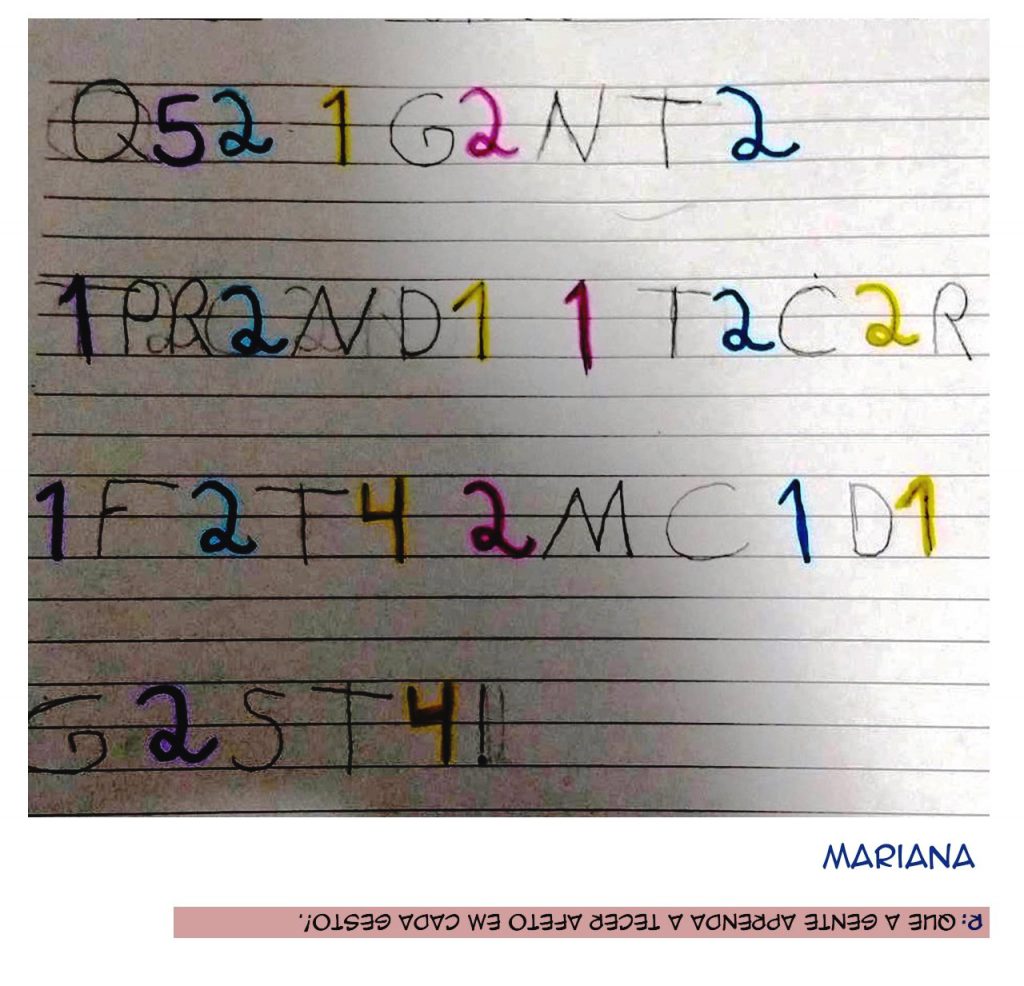 Q52 1 G2NT2
1PR2ND1 1 T2C2R
1F2T4 2M C1D1
G2ST4!
MARIANA
R: QUE A GENTE APRENDA A TECER AFETO EM CADA GESTO!.